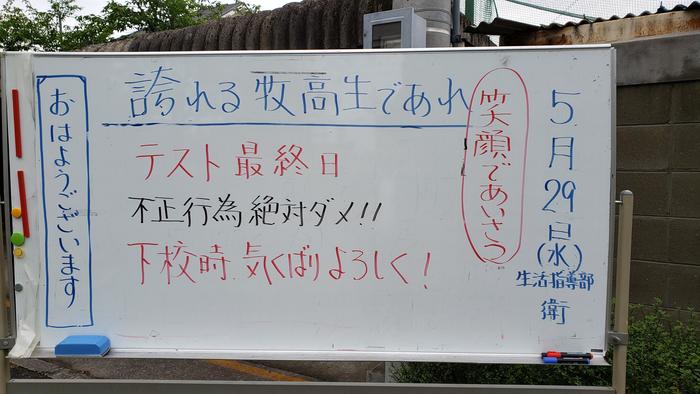 5月29日(水)
生活指導部
衛
笑顔であいさつ
誇れる牧高生であれ
テスト最終日
不正行為絶対ダメ!!
下校時気くばりよろしく!
おはようございます